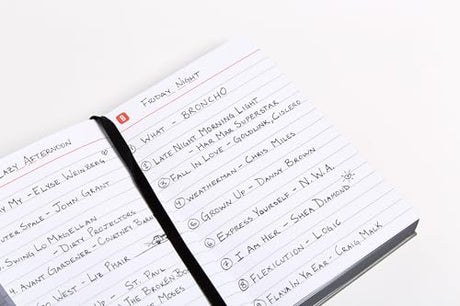 AZY AFTERNOON
Y MY - ELYSE WEINBERG
UTER SPACE - JOHN GRANT
SWING LO MAGELLAN
- DIRTY PROJECTORS
4. AVANT GARDENER - COURTNEY BARN
GO WEST - LIZ PHAIR
UP - ST. PAUL
THE BROKEN BON
T MOSES
8
FRIDAY NIGHT
① WHAT - BRONCHO
② LATE NIGHT MORNING LIGHT
- HAR MAR SUPERSTAR
③ FALL IN LOVE - GOLDLINK, CISCERO
④ WEATHERMAN - CHRIS MILES
⑤ GROWN UP - DANNY BROWN
⑥ EXPRESS YOURSELF - N.W.A.
⑦ I AM HER - SHEA DIAMOND
⑧ FLEXICUTION - LOGIC
⑨ FLAVA IN YA EAR - CRAIG MACK